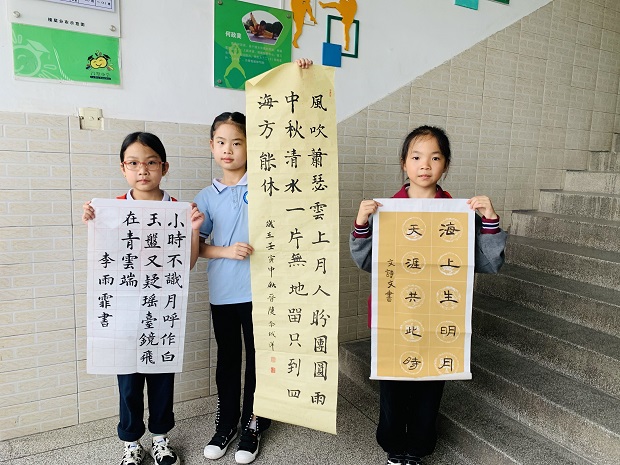 小時不識月呼作白
玉盤又疑瑤臺鏡飛
在青雲端
李雨霏書
風吹蕭瑟雲上月人盼團圓雨
中秋清水一片無地留只到四
海方能休
壬寅中秋
海上生明月
天涯共此時